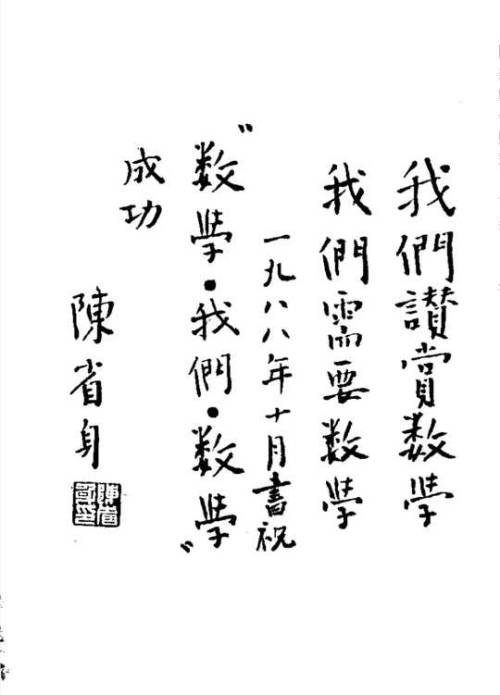 我們讃賞数学
我們需要数学
一九八八年十月書祝
"数学·我們·数学"
成功
陳省身